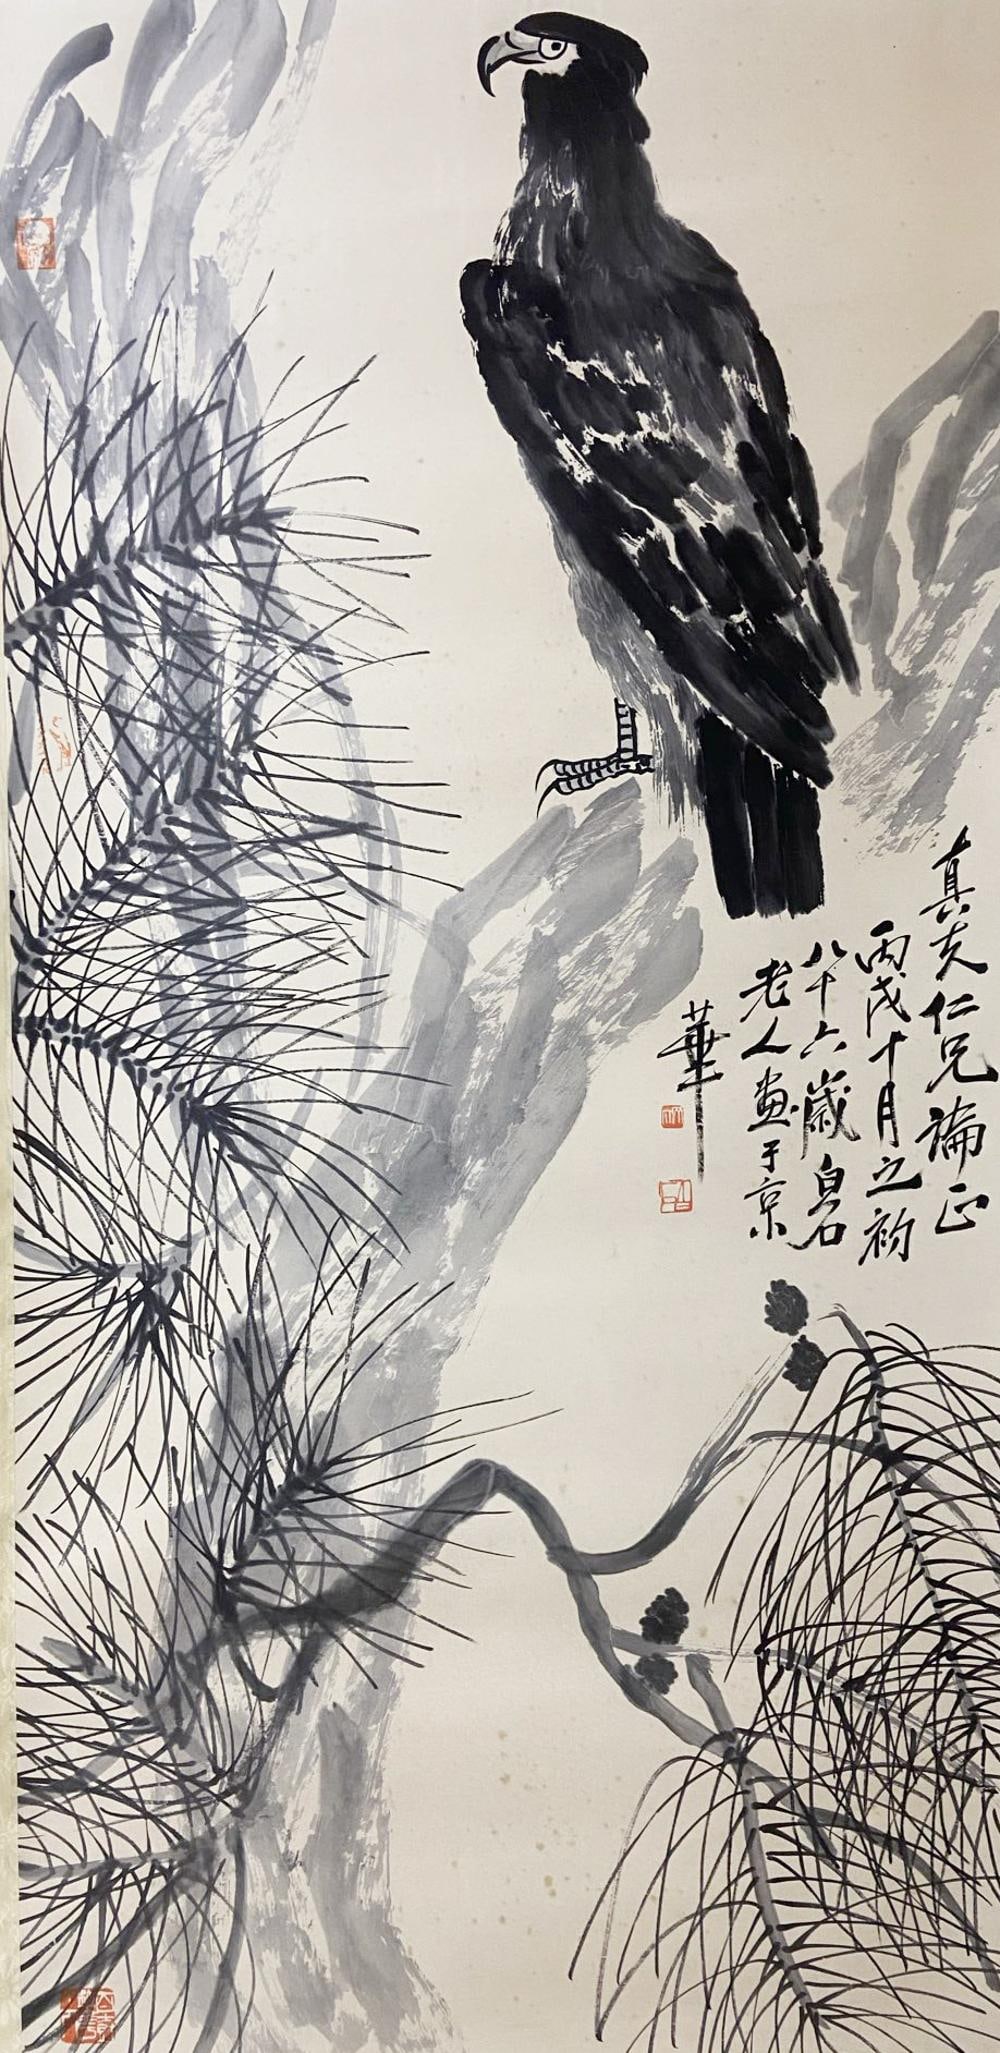 真友仁兄論正
丙戌十月之初
八十六歲白石
老人畫于京
華